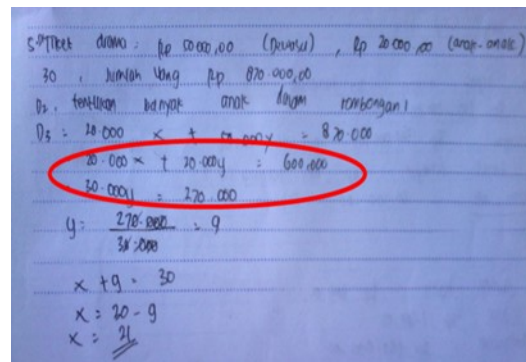 5. Tiket drama : Rp 50000,00 (Dewasa) , Rp 20 000,00 (anak-anak)
30 , Jumlah Uang Rp 870.000,00
D2 , tentukan banyak anak dalam rombongan!
D3 = 20.000 x + 000y = 870.000
20.000 x + 20.000y = 600.000
30.000y = 270.000
y = 270.000 = 9
30.000
x + 9 = 30
x = 20 - 9
x = 21